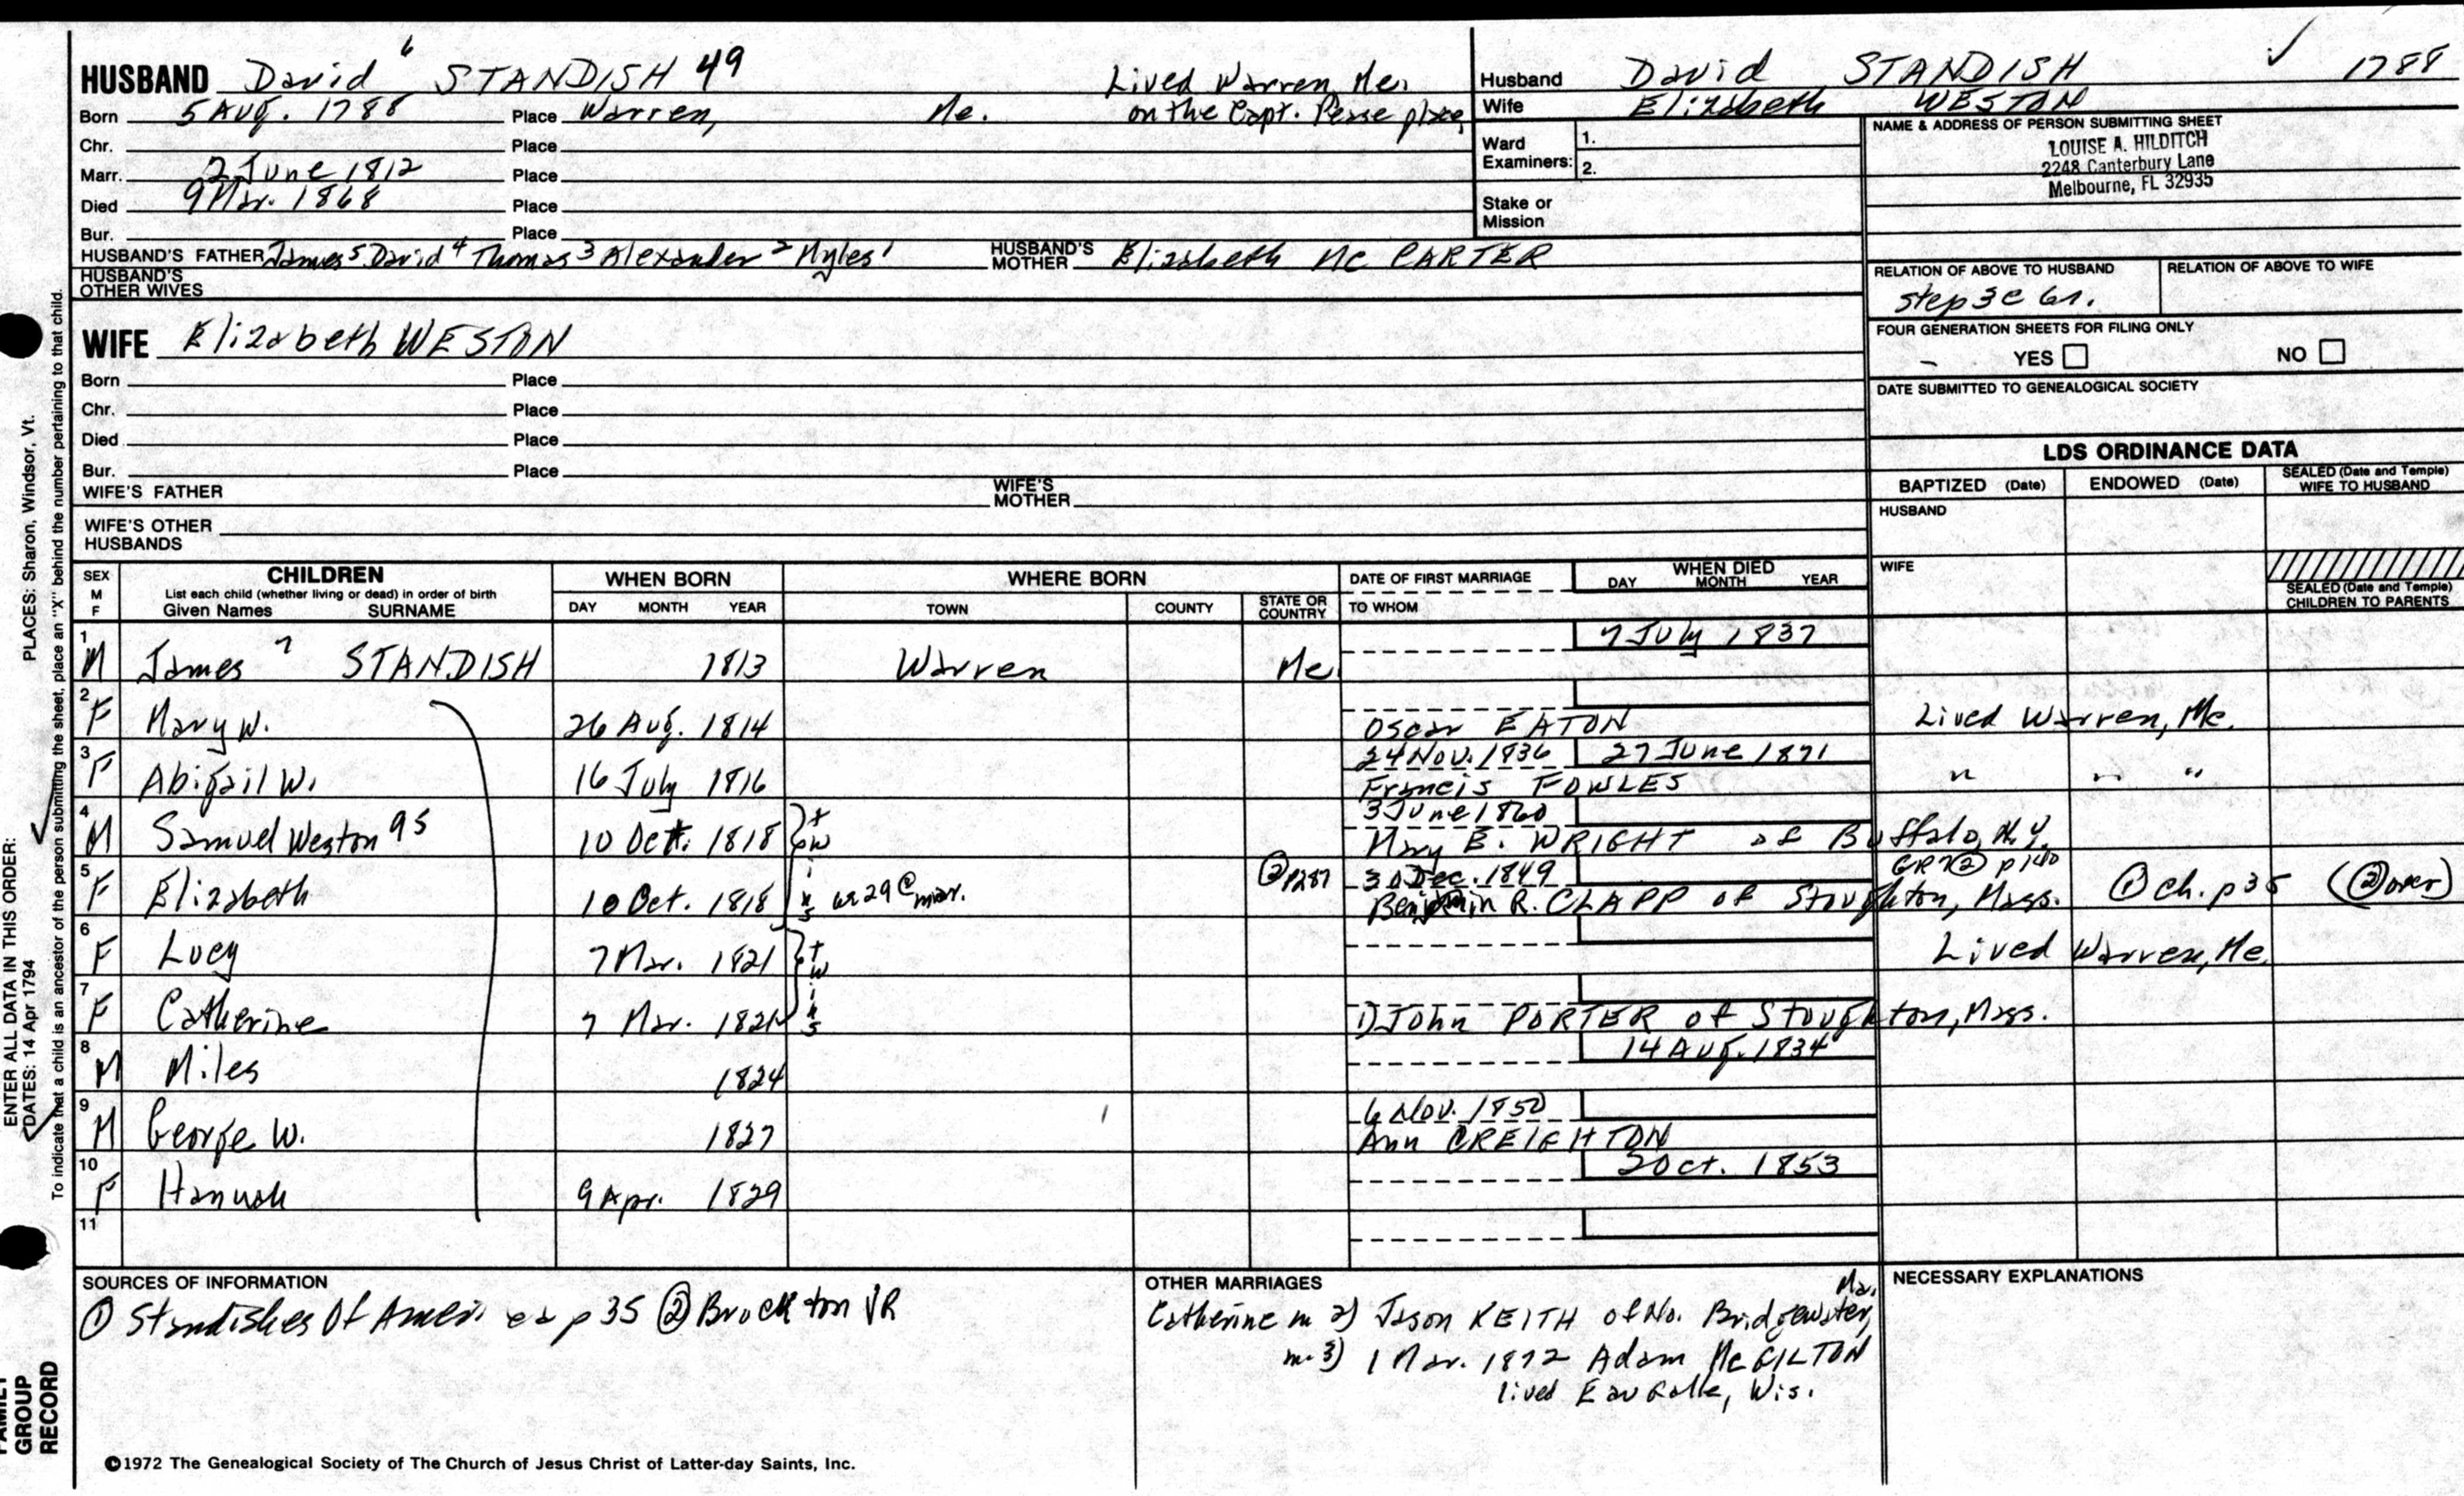 HUSBAND David 6 STANDISH 49 Lived Warren, Me.
Born 5 Aug. 1788 Place Warren, Me. on the Capt. place
Chr. Place
Marr. 2 June 1812 Place
Died 9 Mar. 1868 Place
Bur. Place
HUSBAND'S FATHER James 5 David 4 Thomas 3 Alexander 2 Myles 1 HUSBAND'S MOTHER Elizabeth Mc CARTER
HUSBAND'S OTHER WIVES
WIFE Elizabeth WESTON
Born Place
Chr. Place
Died Place
Bur. Place
WIFE'S FATHER WIFE'S MOTHER
WIFE'S OTHER HUSBANDS
Husband David STANDISH ✓ 1788
Wife Elizabeth WESTON
Ward Examiners: 1.
2.
Stake or Mission
NAME & ADDRESS OF PERSON SUBMITTING SHEET
LOUISE A. HILDITCH
2248 Canterbury Lane
Melbourne, FL 32935
RELATION OF ABOVE TO HUSBAND RELATION OF ABOVE TO WIFE
step 3c 6r.
FOUR GENERATION SHEETS FOR FILING ONLY
YES NO
DATE SUBMITTED TO GENEALOGICAL SOCIETY
LDS ORDINANCE DATA
BAPTIZED (Date) ENDOWED (Date) SEALED (Date and Temple) WIFE TO HUSBAND
HUSBAND
WIFE
SEALED (Date and Temple) CHILDREN TO PARENTS
SEX M F CHILDREN WHEN BORN WHERE BORN DATE OF FIRST MARRIAGE WHEN DIED
List each child (whether living or dead) in order of birth
Given Names SURNAME DAY MONTH YEAR TOWN COUNTY STATE OR COUNTRY TO WHOM DAY MONTH YEAR
7 July 1837
1 M James 7 STANDISH 1813 Warren Me.
2 F Mary W. 26 Aug. 1814 Oscar EATON Lived Warren, Me.
24 Nov. 1836 27 June 1871
3 F Abigail W. 16 July 1816 Francis FOWLES " " "
3 June 1860
4 M Samuel Weston 95 10 Oct. 1818 twins Mary E. WRIGHT of Buffalo, N.Y.
② p287 30 Dec. 1849 GR7② p140
5 F Elizabeth 10 Oct. 1818 29 @ mar. Benjamin R. CLAPP of Stoughton, Mass. ① ch. p35 (② over)
6 F Lucy 7 Mar. 1821 twins Lived Warren, Me.
7 F Catherine 7 Mar. 1821 1) John PORTER of Stoughton, Mass.
14 Aug. 1834
8 M Miles 1824
6 Nov. 1850
9 M George W. 1827 Ann CREIGHTON
2 Oct. 1853
10 F Hannah 9 Apr. 1829
11
SOURCES OF INFORMATION
① Standishes Of America p 35 ② Brockton VR
OTHER MARRIAGES
Catherine m 2) Jason KEITH of No. Bridgewater, Ma.
m. 3) 1 Mar. 1872 Adam McGILTON
lived Eau Galle, Wis.
NECESSARY EXPLANATIONS
©1972 The Genealogical Society of The Church of Jesus Christ of Latter-day Saints, Inc.
ENTER ALL DATA IN THIS ORDER:
DATES: 14 Apr 1794 PLACES: Sharon, Windsor, Vt.
To indicate that a child is an ancestor of the person submitting the sheet, place an "X" behind the number pertaining to that child.
FAMILY GROUP RECORD